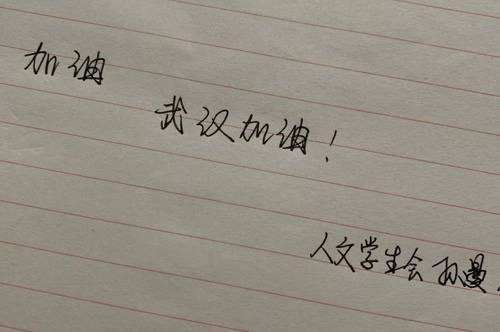 加油
武汉加油！
人文学生会 孙曼